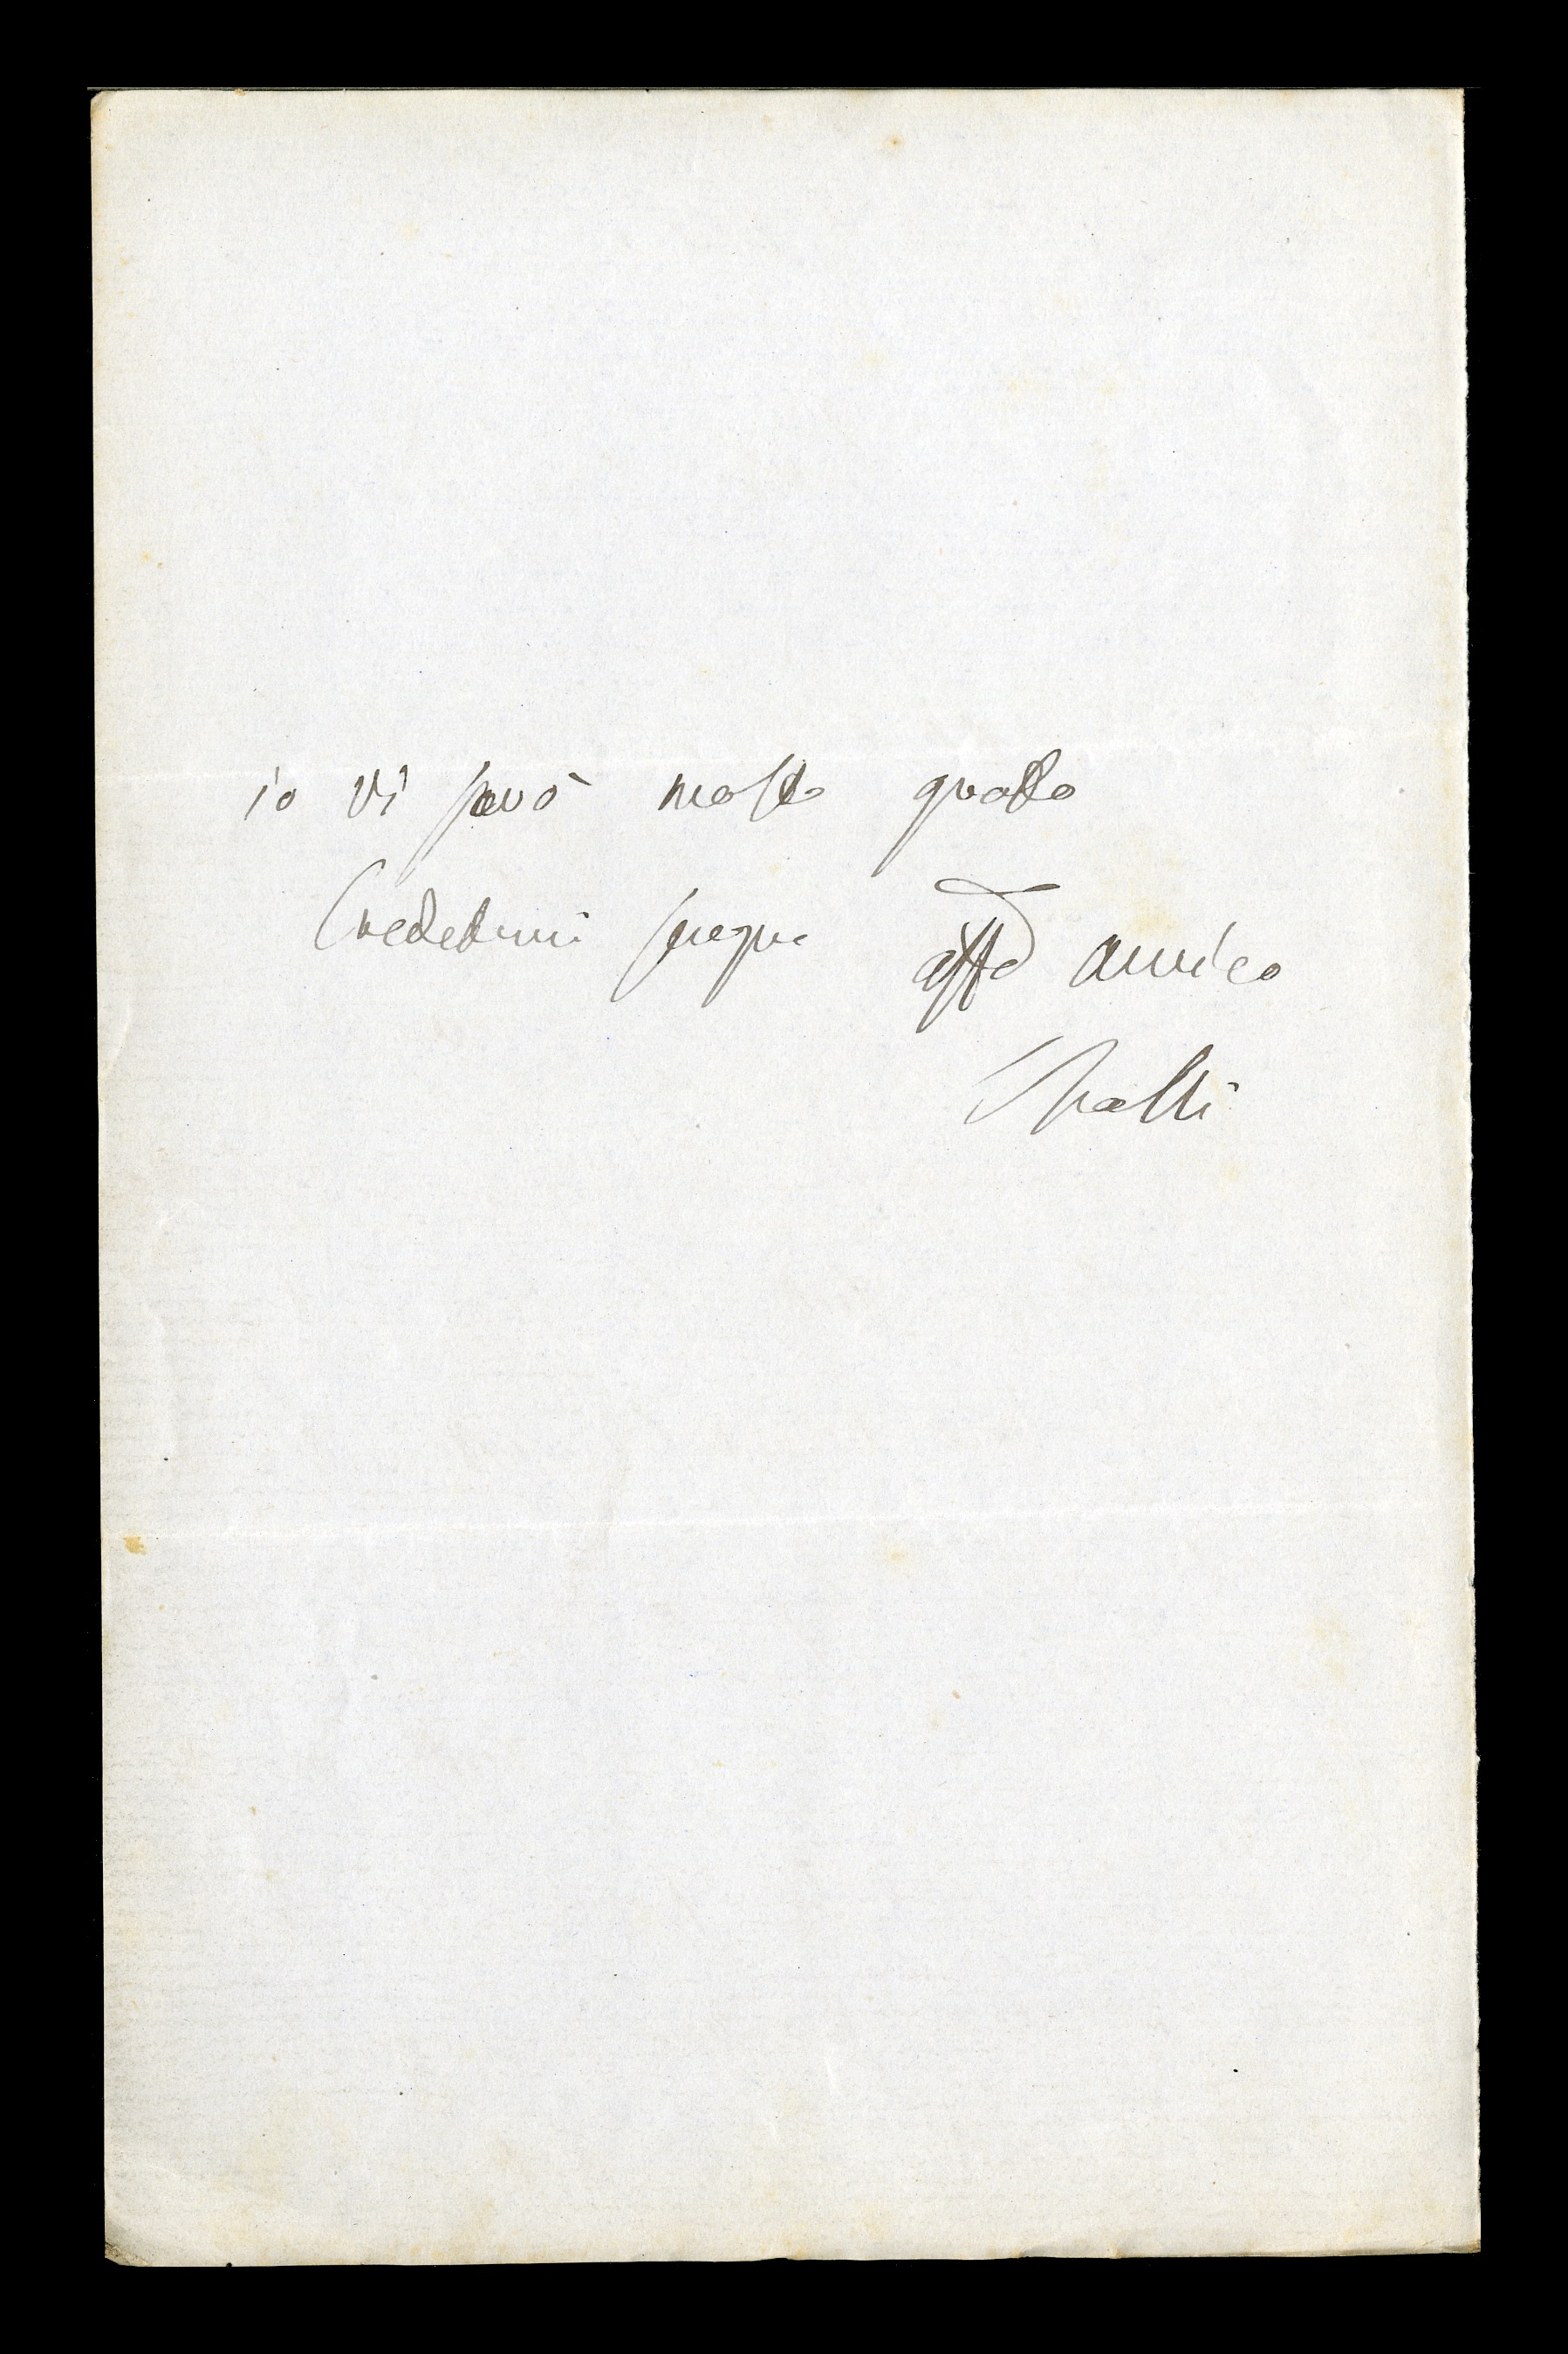 io vi sarò molto grato
Credetemi sempre affo amico